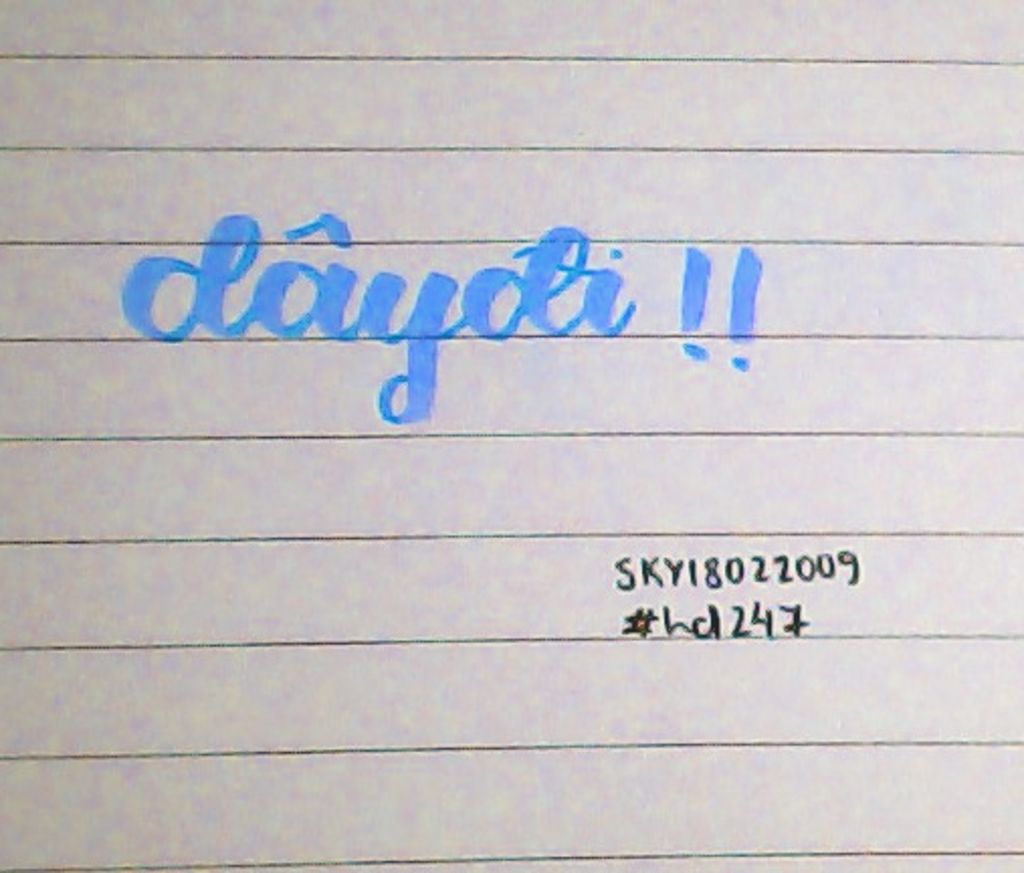 dâyđi !!
SKY18022009
#hd247